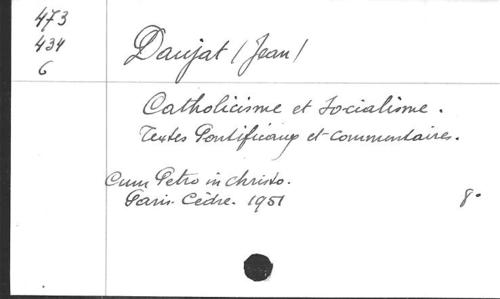 473
434
6
Daujat (Jean)
Catholicisme et Socialisme.
Textes Pontificaux et commentaires.
Cum Petro in Christo.
Paris. Cèdre. 1951 8°